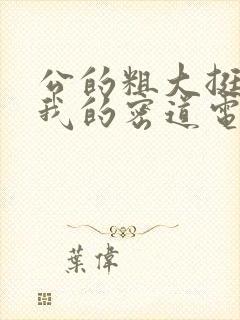 公的粗大挺
我的密道電
葉偉